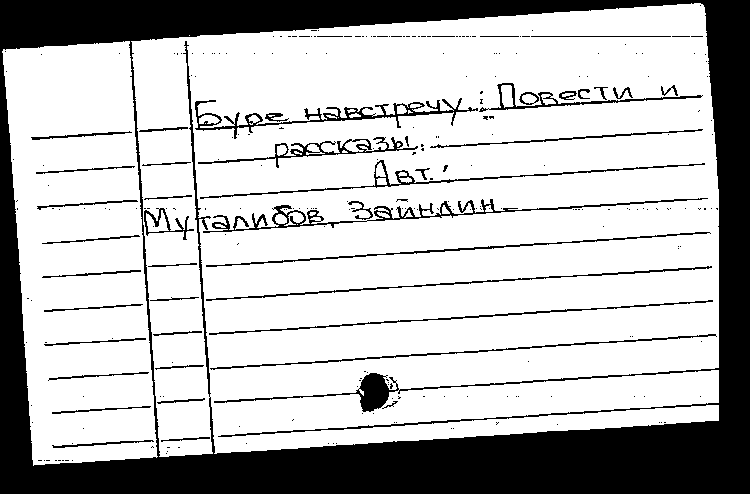 Буре навстречу.: Повести и
рассказы.
Авт.:
Муталибов, Зайндин.